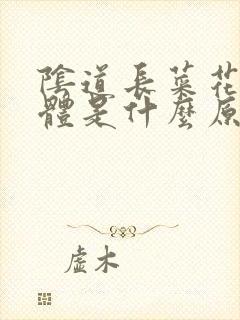 陰道長菜花
體是什麼原
虛木